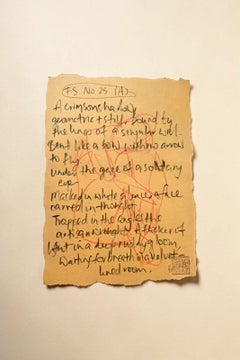 FS No 25 (A)
A crimson shadow
geometric + still, bound by
the limps of a singular will.
Bent like a bow with no arrow
to fly
under the gaze of a solitary
eye
Masked in white silence a face
carved in thought
Trapped in the the
artisan wrought. A flicker of
light in a deep rushing gloom,
Waiting for breath in a velvet
lined room.